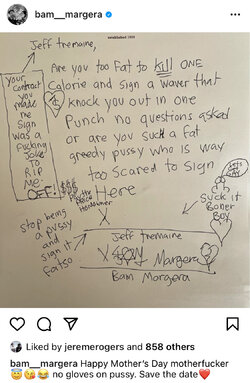 bam__margera
established 1999
Jeff Tremaine,
Are you too Fat to Kill ONE
Calorie and Sign a Waver that
I knock you out in one
Punch no questions asked
or are you such a fat
greedy pussy who is way
too Scared to Sign
Here
your
Contract
you
make
me
Sign
was a
Fucking
Joke
To
RiP
Me
OFF!
$$$
Stop being
a pussy
and
sign it
Fatso
X
Jeff tremaine
X Margera
Bam Margera
Suck it
Boner
Boy
Liked by jeremerogers and 858 others
bam__margera Happy Mother's Day motherfucker
😇😘😂 no gloves on pussy. Save the date❤️